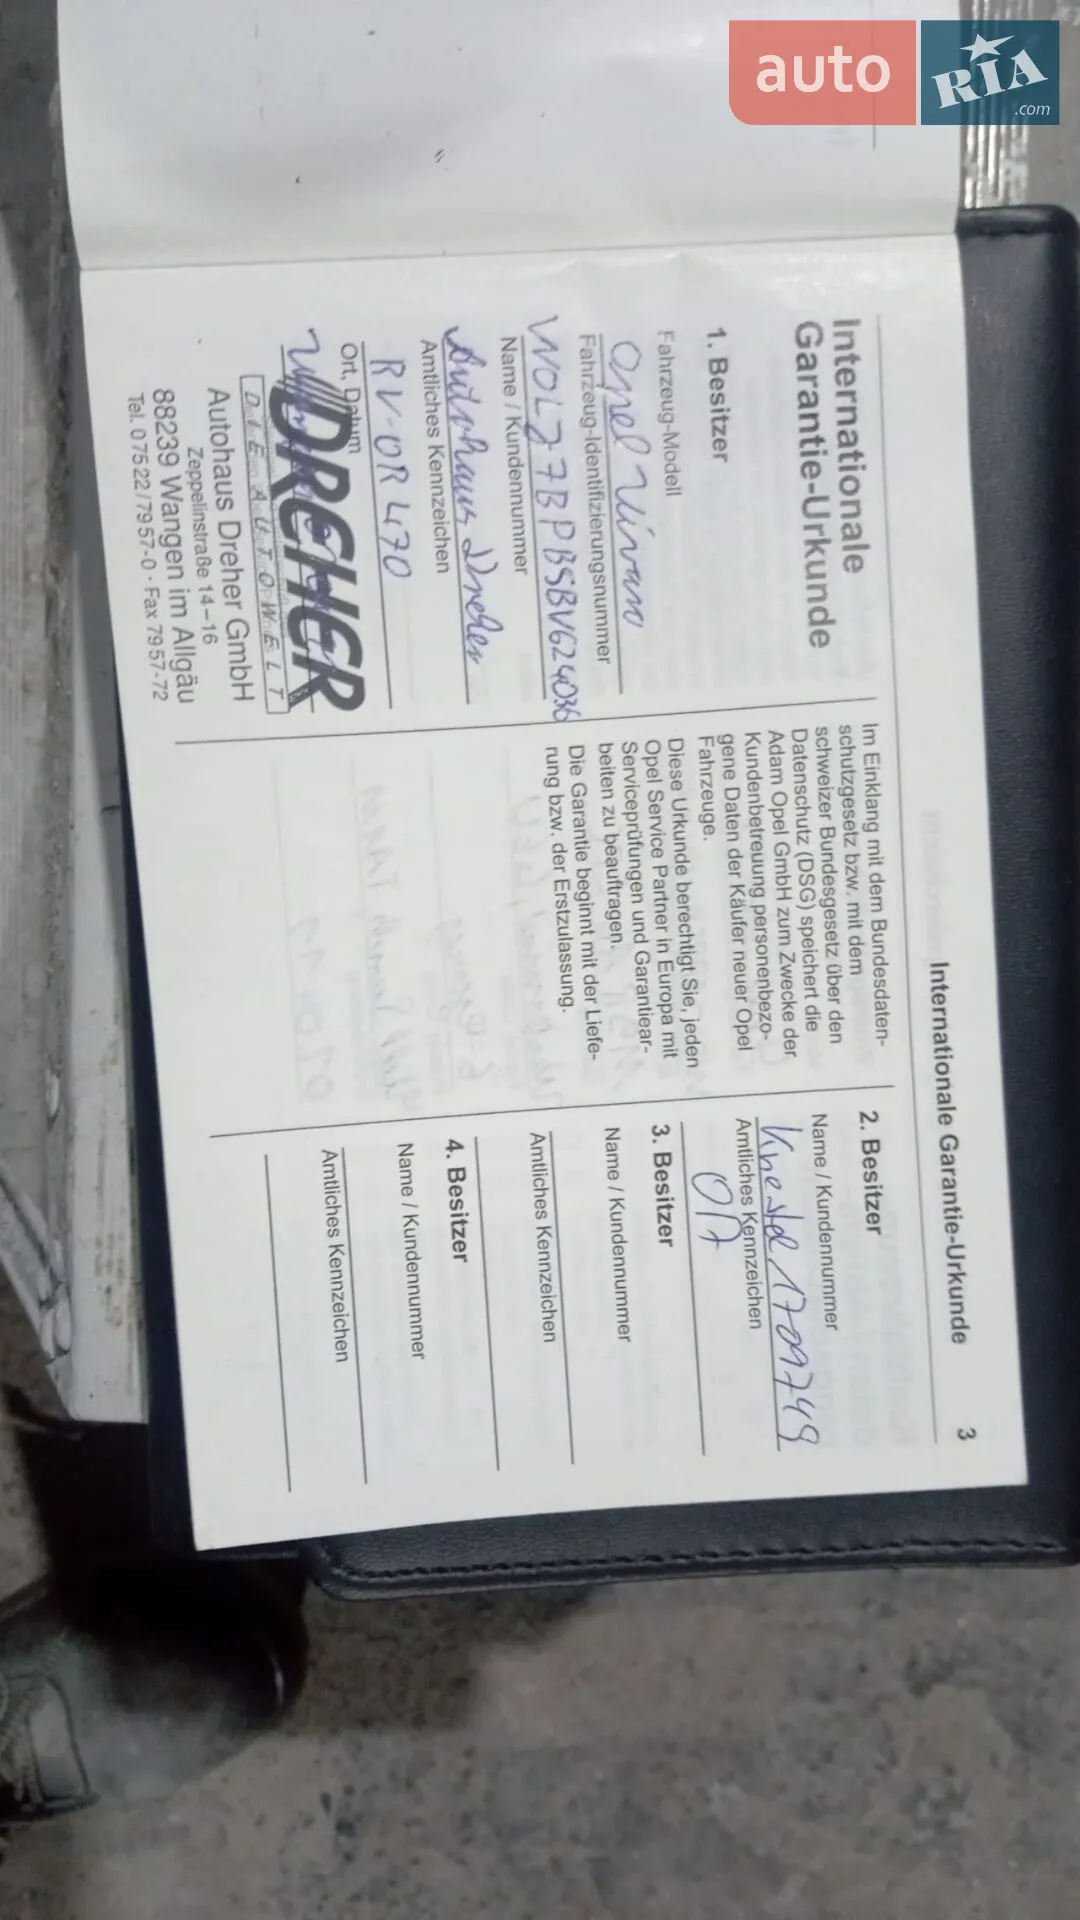 auto
RIA
.com
Internationale Garantie-Urkunde
3
Internationale
Garantie-Urkunde
1. Besitzer
Fahrzeug-Modell
Opel Vivaro
Fahrzeug-Identifizierungsnummer
W0LJ7BPBSBV624036
Name / Kundennummer
Autohaus Dreher
Amtliches Kennzeichen
RV-OR 470
Ort, Datum
DREHER
DIE AUTOWELT
Autohaus Dreher GmbH
Zeppelinstraße 14–16
88239 Wangen im Allgäu
Tel. 0 75 22 / 79 57-0 · Fax 79 57-72
Im Einklang mit dem Bundesdaten-
schutzgesetz bzw. mit dem
schweizer Bundesgesetz über den
Datenschutz (DSG) speichert die
Adam Opel GmbH zum Zwecke der
Kundenbetreuung personenbezo-
gene Daten der Käufer neuer Opel
Fahrzeuge.
Diese Urkunde berechtigt Sie, jeden
Opel Service Partner in Europa mit
Serviceprüfungen und Garantiear-
beiten zu beauftragen.
Die Garantie beginnt mit der Liefe-
rung bzw. der Erstzulassung.
2. Besitzer
Name / Kundennummer
Knestel 1709749
Amtliches Kennzeichen
3. Besitzer
Name / Kundennummer
Amtliches Kennzeichen
4. Besitzer
Name / Kundennummer
Amtliches Kennzeichen